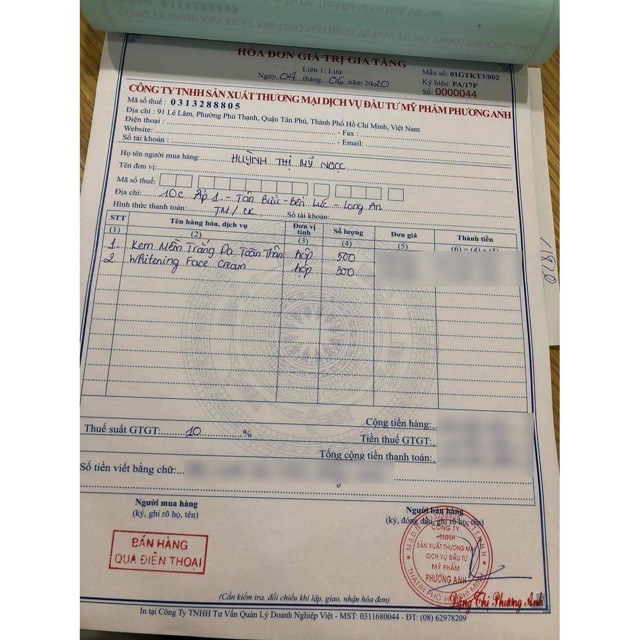 HÓA ĐƠN GIÁ TRỊ GIA TĂNG
Liên 1: Lưu
Ngày 04 tháng 06 năm 2020
Mẫu số: 01GTKT3/002
Ký hiệu: PA/17P
Số: 0000044
CÔNG TY TNHH SẢN XUẤT THƯƠNG MẠI DỊCH VỤ ĐẦU TƯ MỸ PHẨM PHƯƠNG ANH
Mã số thuế : 0313288805
Địa chỉ : 91 Lê Lâm, Phường Phú Thạnh, Quận Tân Phú, Thành Phố Hồ Chí Minh, Việt Nam
Điện thoại : - Fax :
Website: - Email:
Số tài khoản:
Họ tên người mua hàng: HUỲNH THỊ MỸ NGỌC
Tên đơn vị:
Mã số thuế:
Địa chỉ: 10C Ấp 1 - Tân Bửu - Bến Lức - Long An
Hình thức thanh toán: TM/CK Số tài khoản:
STT Tên hàng hóa, dịch vụ Đơn vị tính Số lượng Đơn giá Thành tiền
(1) (2) (3) (4) (5) (6) = (4) x (5)
1. Kem Mềm Trắng Da Toàn Thân hộp 500
2 Whitening Face Cream hộp 300
Cộng tiền hàng:
Thuế suất GTGT: 10 % Tiền thuế GTGT:
Tổng cộng tiền thanh toán:
Số tiền viết bằng chữ:
Người mua hàng Người bán hàng
(ký, ghi rõ họ, tên) (ký, đóng dấu, ghi rõ họ, tên)
BÁN HÀNG
QUA ĐIỆN THOẠI
CÔNG TY
TNHH
SẢN XUẤT THƯƠNG MẠI
DỊCH VỤ ĐẦU TƯ
MỸ PHẨM
PHƯƠNG ANH
Đặng Thị Phương Anh
(Cần kiểm tra, đối chiếu khi lập, giao, nhận hóa đơn)
In tại Công Ty TNHH Tư Vấn Quản Lý Doanh Nghiệp Việt - MST: 0311680044 - ĐT: (08) 62978209